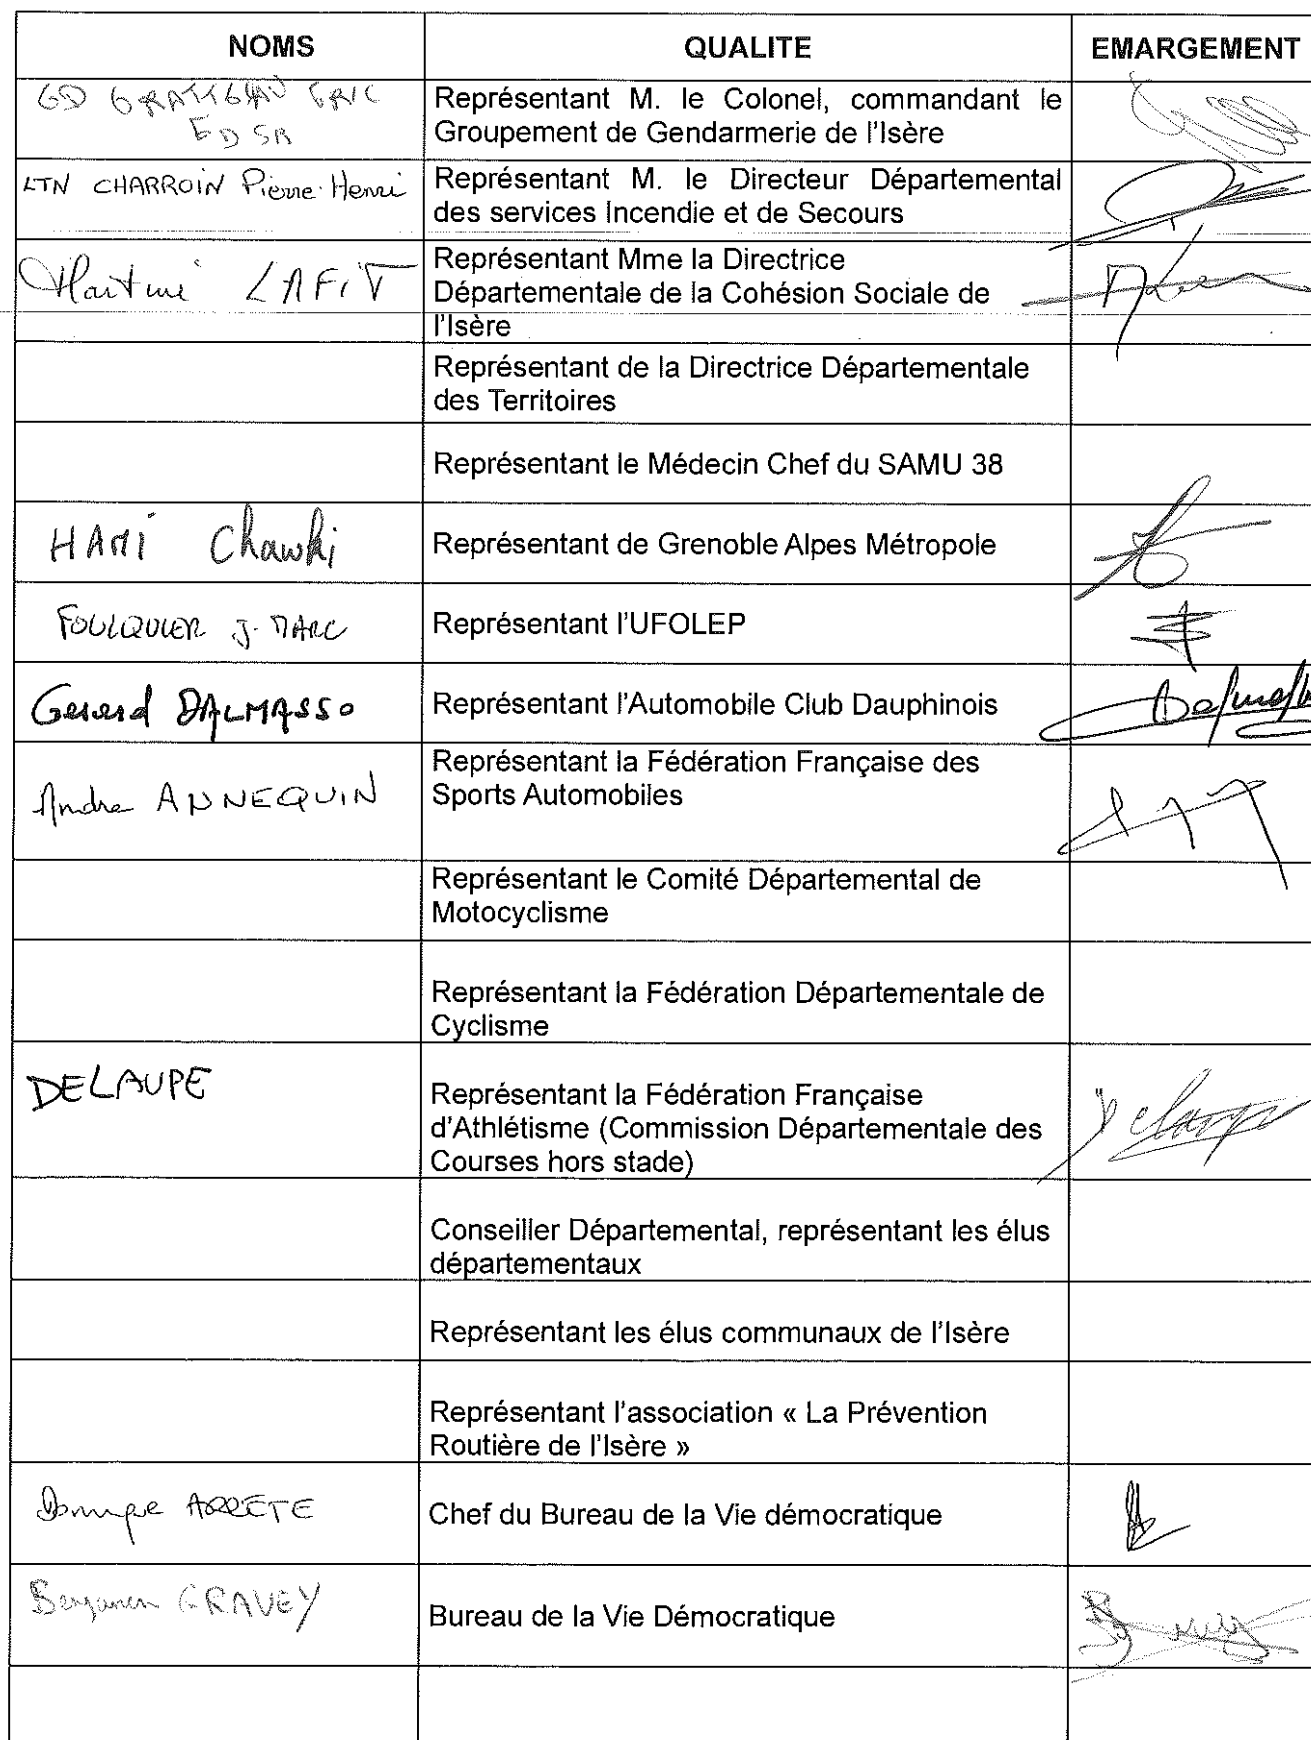 NOMS QUALITE EMARGEMENT
ERIC
EDSR
Représentant M. le Colonel, commandant le
Groupement de Gendarmerie de l'Isère
LTN CHARROIN Pierre-Henri
Représentant M. le Directeur Départemental
des services Incendie et de Secours
Martine LAFIT
Représentant Mme la Directrice
Départementale de la Cohésion Sociale de
l'Isère
Représentant de la Directrice Départementale
des Territoires
Représentant le Médecin Chef du SAMU 38
HAMI Chawki
Représentant de Grenoble Alpes Métropole
FOULQUIER J. MARC
Représentant l'UFOLEP
Gerard DALMASSO
Représentant l'Automobile Club Dauphinois
Andre ANNEQUIN
Représentant la Fédération Française des
Sports Automobiles
Représentant le Comité Départemental de
Motocyclisme
Représentant la Fédération Départementale de
Cyclisme
DELAUPE
Représentant la Fédération Française
d'Athlétisme (Commission Départementale des
Courses hors stade)
Conseiller Départemental, représentant les élus
départementaux
Représentant les élus communaux de l'Isère
Représentant l'association « La Prévention
Routière de l'Isère »
ARRETE
Chef du Bureau de la Vie démocratique
Benjamin GRAVEY
Bureau de la Vie Démocratique